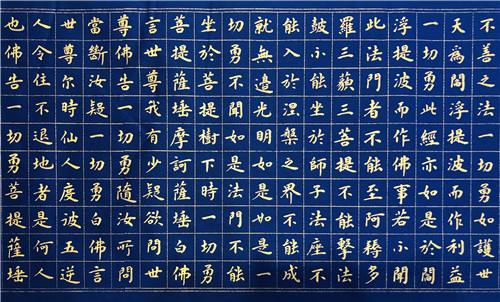 不善之法一切勇如護世
天為閻浮提波而作利益
一切勇此經亦如是於閻
浮提波而作佛事若不聞
此法門者不能至阿耨多
羅三藐三菩提不能擊法
皷不能坐於師子法座不
能入於涅槃之界不能成
就無邊光明如是如是一
切勇不聞如是法門不能
坐於菩提樹下時一切勇
菩提薩埵摩訶薩埵白佛
言世尊我有少疑欲問世
尊佛告一切勇隨汝所問
當斷汝疑一切勇白佛言
世尊尔時仙人度彼五逆
人令住不退地者是何人
也佛告一切勇菩提薩埵